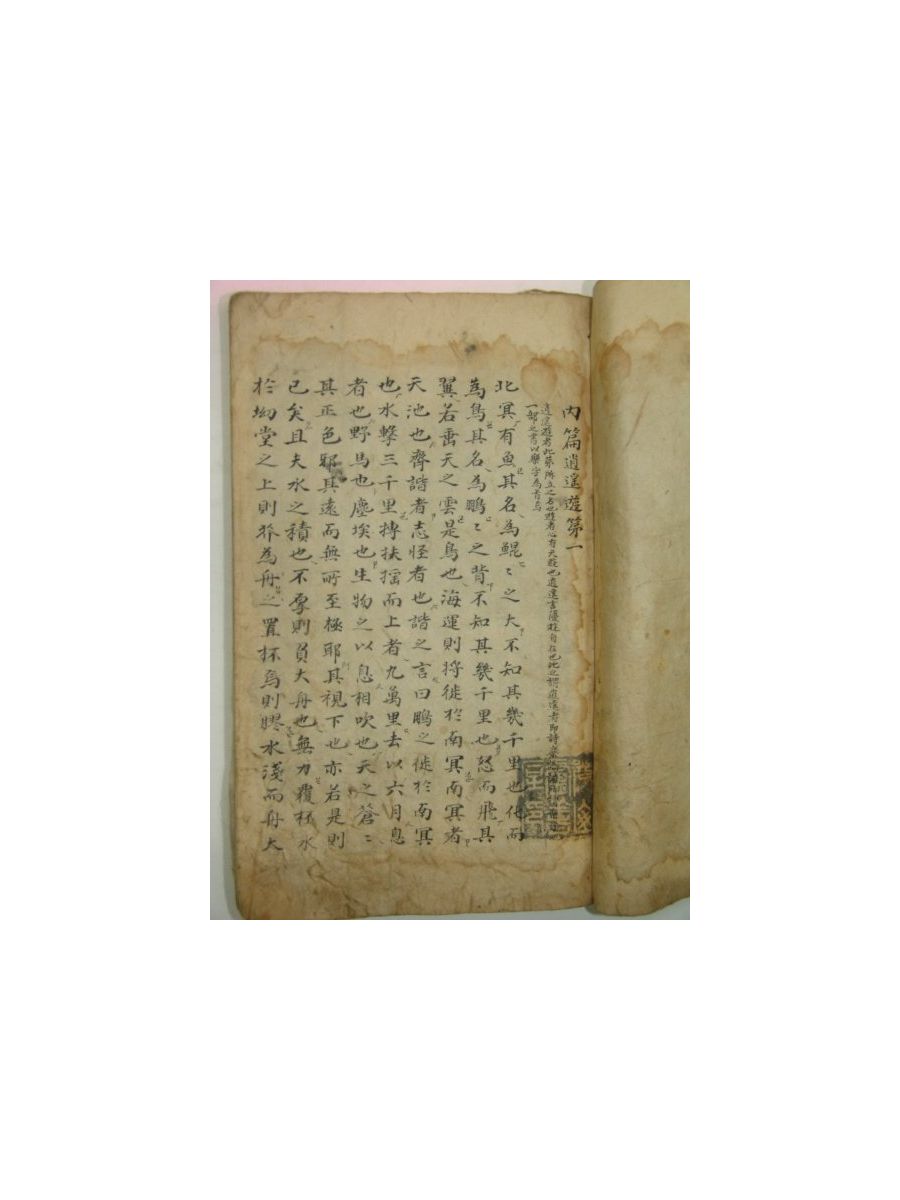 內篇逍遙遊第一
逍遙遊者此篇所立之名也遊者心有天遊也逍遙言優游自在也此之謂逍遙者即詩
一部之書以樂字為首
北冥有魚其名為鯤〻之大不知其幾千里也化而
為鳥其名為鵬〻之背不知其幾千里也怒而飛其
翼若垂天之雲是鳥也海運則將徙於南冥南冥者
天池也齊諧者志怪者也諧之言曰鵬之徙於南冥
也水擊三千里摶扶搖而上者九萬里去以六月息
者也野馬也塵埃也生物之以息相吹也天之蒼〻
其正色耶其遠而無所至極耶其視下也亦若是則
已矣且夫水之積也不厚則負大舟也無力覆杯水
於坳堂之上則芥為舟之置杯焉則膠水淺而舟大